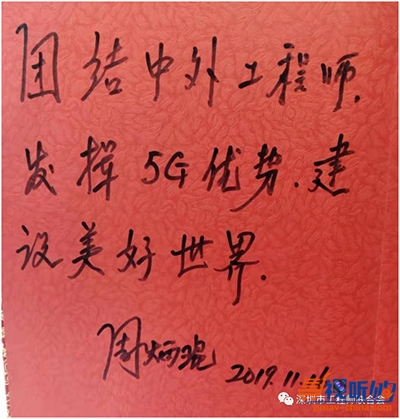 团结中外工程师.
发挥5G优势.建
设美好世界.
周炳琨
2019.11.
深圳市工程师联合会
视听的